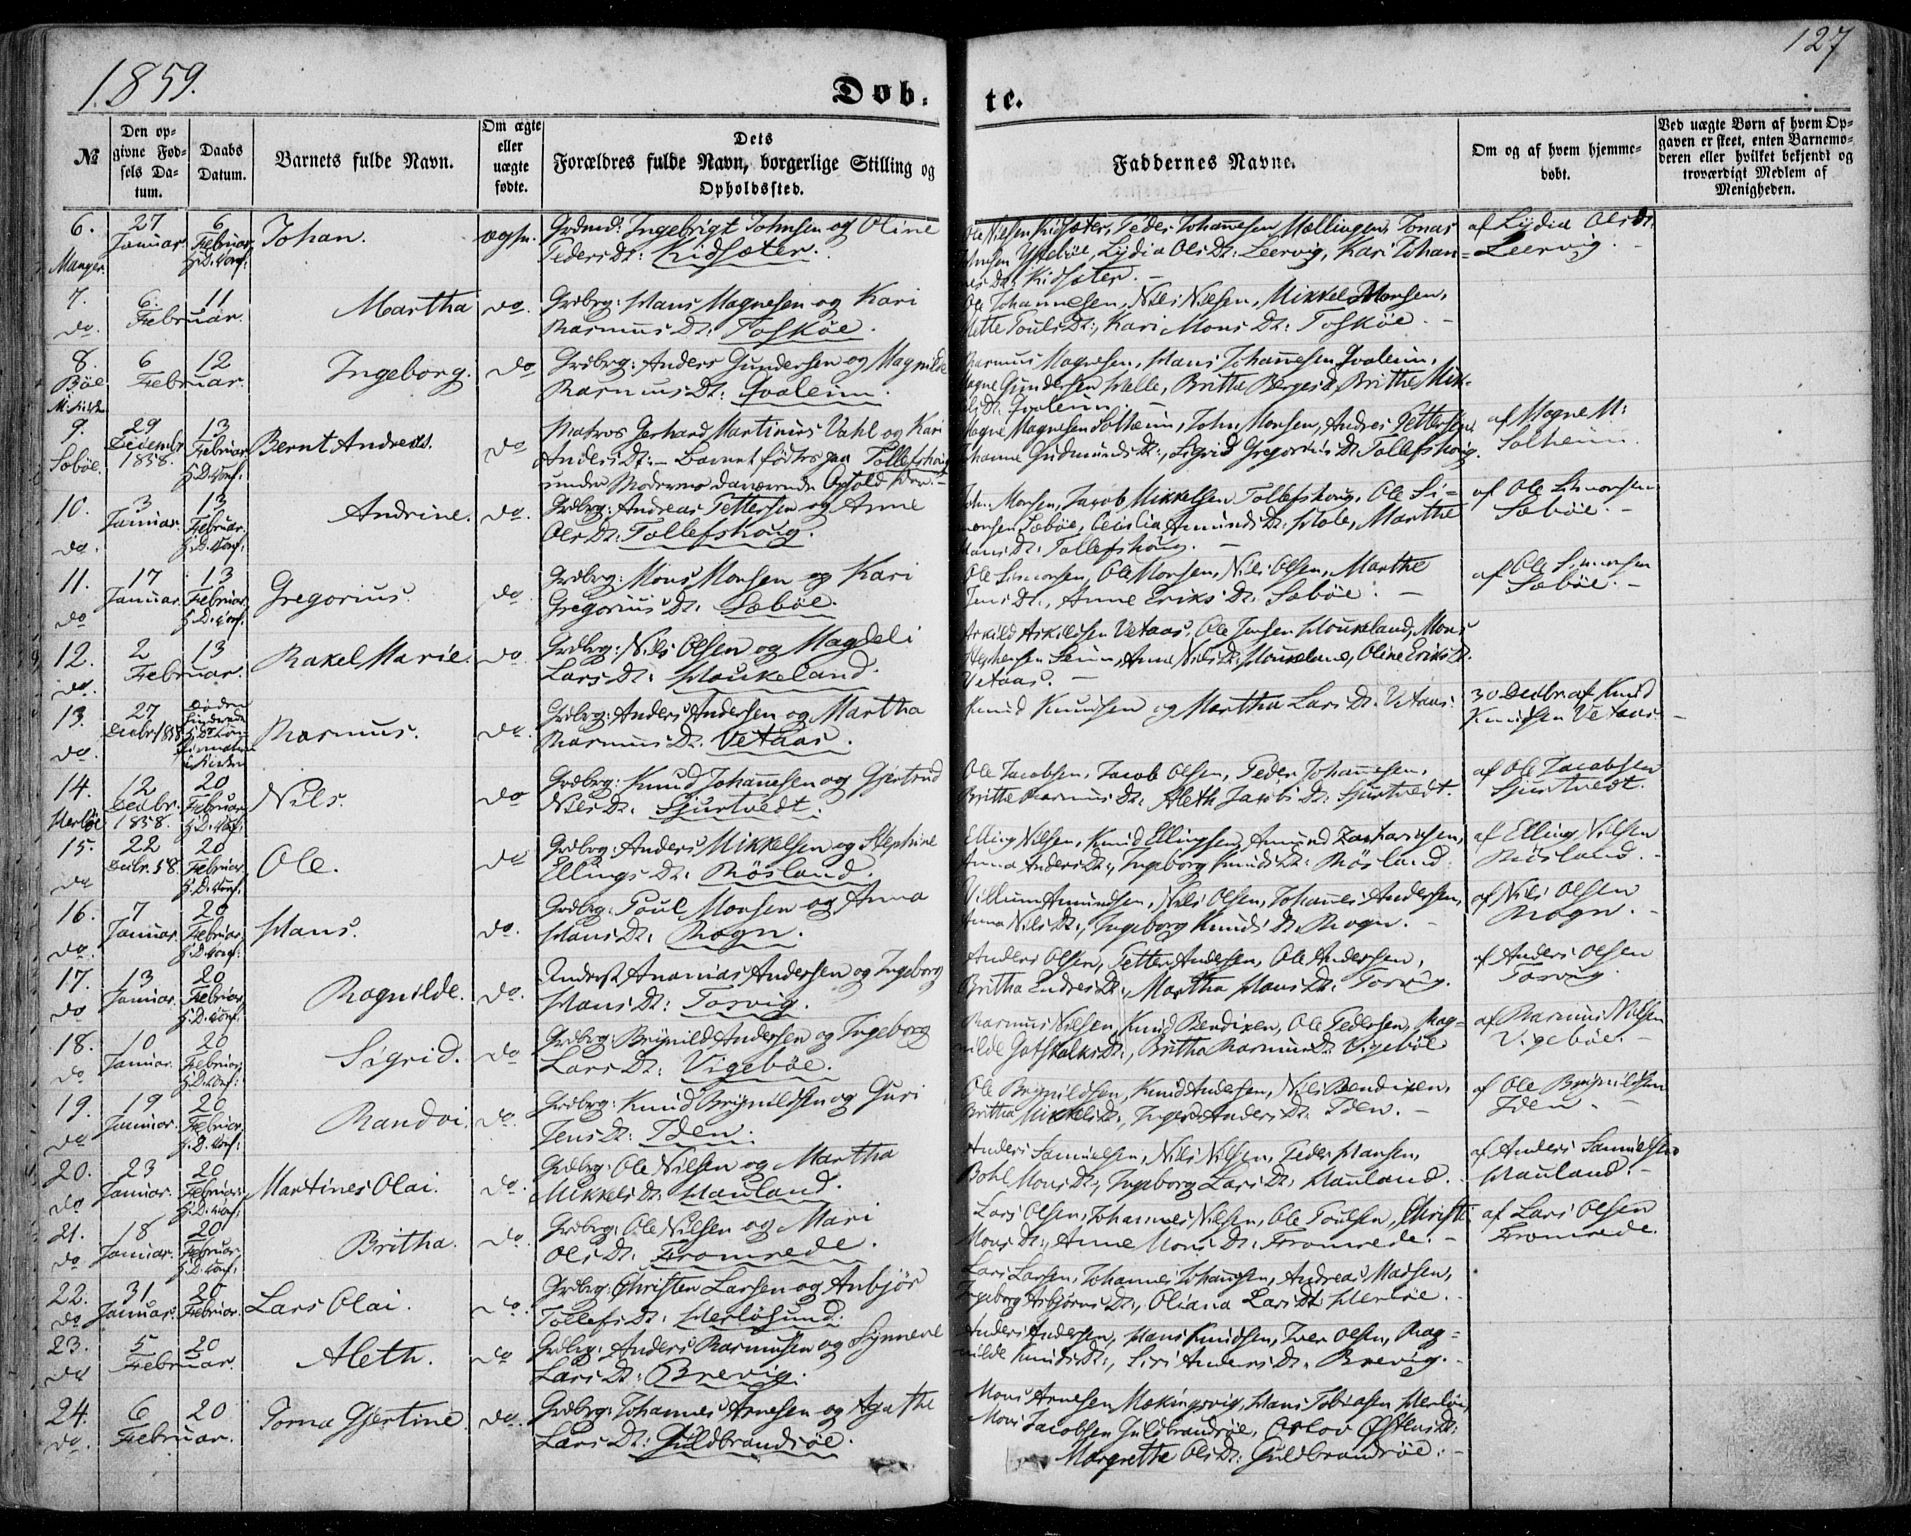 1859.
Døb-
te.
127
№
Den op-
givne Fød-
sels Da-
tum.
Daabs
Datum.
Barnets fulde Navn.
Om ægte
eller
uægte
fødte.
Dets
Forældres fulde Navn, borgerlige Stilling og
Opholdssted.
Faddernes Navne.
Om og af hvem hjemme-
døbt.
Ved uægte Børn af hvem Op-
gaven er skeet, enten Barnemo-
deren eller hvilket bekjendt og
troværdigt Medlem af
Menigheden.
6.
Manger
27
Januar
6
Februar
H: D: Conf:
Johan.
Ingebrigt Johnsen og Oline
Peders Dt: Kidsæter.
Ole Nilsen Kidsæter, Peder Johannesen Mællingen, Jonas
Johnsen Ystebøe, Lydia Ols Dt: Leervig, Kari Johan-
nes Dt: Kidsæter. -
af Lydia Ols Dt:
Leervig. -
7.
do
6. 11
Februar.
Martha
do.
Grdbrg: Hans Magnesen og Kari
Rasmus Dt: Toskøe.
Ole Johannesen, Nils Nilsen, Mikkel Monsen,
Mette Pouls Dt:, Kari Mons Dt: Toskøe. -
8.
Bøe
6 12
Februar.
Ingeborg.
do
Grdbrg: Anders Gundersen og Magnilde
Rasmus Dt: Qvalein.
Rasmus Magnesen, Hans Johannesen Qvalein,
Magne Gundersen Helle, Brithe Mik-
kels Dt: Qvalein. -
9.
Sæbøe
29
Decembr
1858.
13
Februar
H: D: Conf:
Bernt Andreas.
do
Matros Gerhard Martinius Vahl og Kari
Anders Dt: - Barnet fødtes paa Tollefshoug
under Moderens daværende Ophold der. -
Magne Magnesen Solheim, John Monsen, Andres Pettersen,
Johanne Gudmunds Dt:, Sigrid Gregorius Dt: Tollefshoug.
af Magne M:
Solheim.
10.
do.
3
Januar.
13
Februar
H: D: Conf:
Andrine.
do.
Grdbrg: Andreas Pettersen og Anne
Ols Dt: Tollefshoug.
John Monsen, Jacob Mikkelsen Tollefshoug, Ole Si-
monsen Sæbøe, Cecilia Amunds Dt: Hole, Marthe
Hans Dt: Tollefshoug. -
af Ole Simonsen
Sæbøe. -
11.
do
17
Januar.
13
Februar
H: D: Conf:
Gregorius
do.
Grdbrg: Mons Monsen og Kari
Gregorius Dt: Sæbøe.
Ole Simonsen, Ole Monsen, Nils Olsen, Marthe
Jens Dt:, Anne Eriks Dt: Sæbøe. -
af Ole Simonsen
Sæbøe. -
12.
do.
2 13
Februar.
Rakel Marie.
do
Grdbrg: Nils Olsen og Magdeli
Lars Dt: Houkeland.
Askild Askildsen Vetaas, Ole Jensen Houkeland, Mons
Stephensen Seim, Anne Nils Dt: Houkeland, Oline Eriks Dt:
Vetaas. -
13.
do.
27
Decbr 1858
Rasmus.
do.
Grdbrg: Anders Andersen og Martha
Rasmus Dt: Vetaas.
Knud Knudsen og Martha Lars Dt: Vetaas.
30 Decbr. af Knud
Knudsen Vetaas -
14.
Herløe
12
Decbr.
1858.
20
Februar
H: D: Conf:
Nils.
do
Grdbrg: Knud Johannesen og Gjertrud
Nils Dt: Sjurtvedt.
Ole Jacobsen, Jacob Olsen, Peder Johannesen,
Britha Rasmus Dt: Aleth Jacobs Dt: Sjurtvedt.
af Ole Jacobsen
Sjurtvedt.
15.
do
22
Decbr. 58
20
Februar
H: D: Conf:
Ole.
do
Grdbrg: Anders Mikkelsen og Stephine
Ellings Dt: Røsland.
Elling Nilsen, Knud Ellingsen, Amund Zachariasen,
Anna Anders Dt:, Ingeborg Knuds Dt: Røsland.
af Elling Nilsen
Røsland. -
16.
do.
7
Januar.
20
Februar
H: D: Conf:
Hans.
do.
Grdbrg: Poul Monsen og Anna
Hans Dt: Rogn.
Villum Amundsen, Nils Olsen, Johannes Andersen,
Anna Nils Dt:, Ingeborg Knuds Dt: Rogn. -
af Nils Olsen
Rogn. -
17.
do
13
Januar.
20
Februar
H: D: Conf:
Ragnilde.
do.
Ananias Andersen og Ingeborg
Hans Dt: Torvig.
Anders Olsen, Petter Andersen, Ole Andersen,
Britha Endres Dt:, Martha Hans Dt: Torvig.
af Anders Olsen
Torvig.
18.
do
10
Januar.
20
Februar
H: D: Conf:
Sigrid.
do
Grdbrg: Brynild Andersen og Ingeborg
Lars Dt: Vigebøe.
Rasmus Nilsen, Knud Bendixen, Ole Pedersen, Rag-
nilde Gotskalks Dt:, Britha Rasmus Dt: Vigebøe
af Rasmus Nilsen
Vigebøe. -
19.
do
19
Januar.
20
Februar
H: D: Conf:
Randvi
do.
Grdbrg: Knud Brynildsen og Guri
Jens Dt: Iden.
Ole Brynildsen, Knud Andersen, Nils Bendixen,
Britha Mikkels Dt:, Inger Anders Dt: Iden. -
af Ole Brynildsen
Iden. -
20.
do
23
Januar.
20
Februar
H: D: Conf:
Martines Olai.
do.
Grdbrg: Ole Nilsen og Martha
Mikkels Dt: Hauland.
Anders Samuelsen, Nils Nilsen, Peder Hansen,
Bohl Mons Dt:, Ingeborg Lars Dt: Hauland.
af Anders Samuelsen
Hauland. -
21.
do
18
Januar.
20
Februar
H: D: Conf:
Britha.
do.
Grdbrg: Ole Nilsen og Mari
Ols Dt: Fromrede.
Lars Olsen, Johannes Nilsen, Ole Poulsen, Christi
Mons Dt:, Anne Mons Dt: Fromrede. -
af Lars Olsen
Fromrede.
22.
do
31
Januar.
20
Februar.
Lars Olai.
do.
Grdbrg: Christen Larsen og Anbjør
Tollefs Dt: Herløsund.
Lars Larsen, Johannes Johannesen, Andreas Madsen,
Ingeborg Asbjørns Dt:, Oliana Lars Dt: Herløe. -
23.
do
5 20
Februar.
Aleth.
do
Grdbrg: Anders Rasmussen og Synneve
Lars Dt: Brevig.
Anders Andersen, Hans Knudsen, Iver Olsen, Rag-
nilde Knuds Dt:, Siri Anders Dt: Brevig. -
24.
do.
6 20
Februar.
Torna Gjertine.
do.
Grdbrg: Johannes Arnesen og Agathe
Lars Dt: Guldbrandsøe.
Mons Arnesen Møkingsvig, Hans Tobiasen Herløe,
Mons Jacobsen Guldbrandsøe, Orlov Østens Dt:
Margrethe Ols Dt: Guldbrandsøe. -